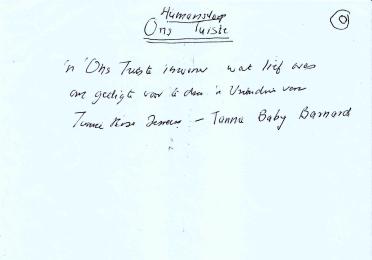 Humansdorp
Ons Tuiste
'n Ons Tuiste inwoner wat lief was
om gedigte voor te dra 'n Vriendin van
Tannie - Tannie Baby Barnard